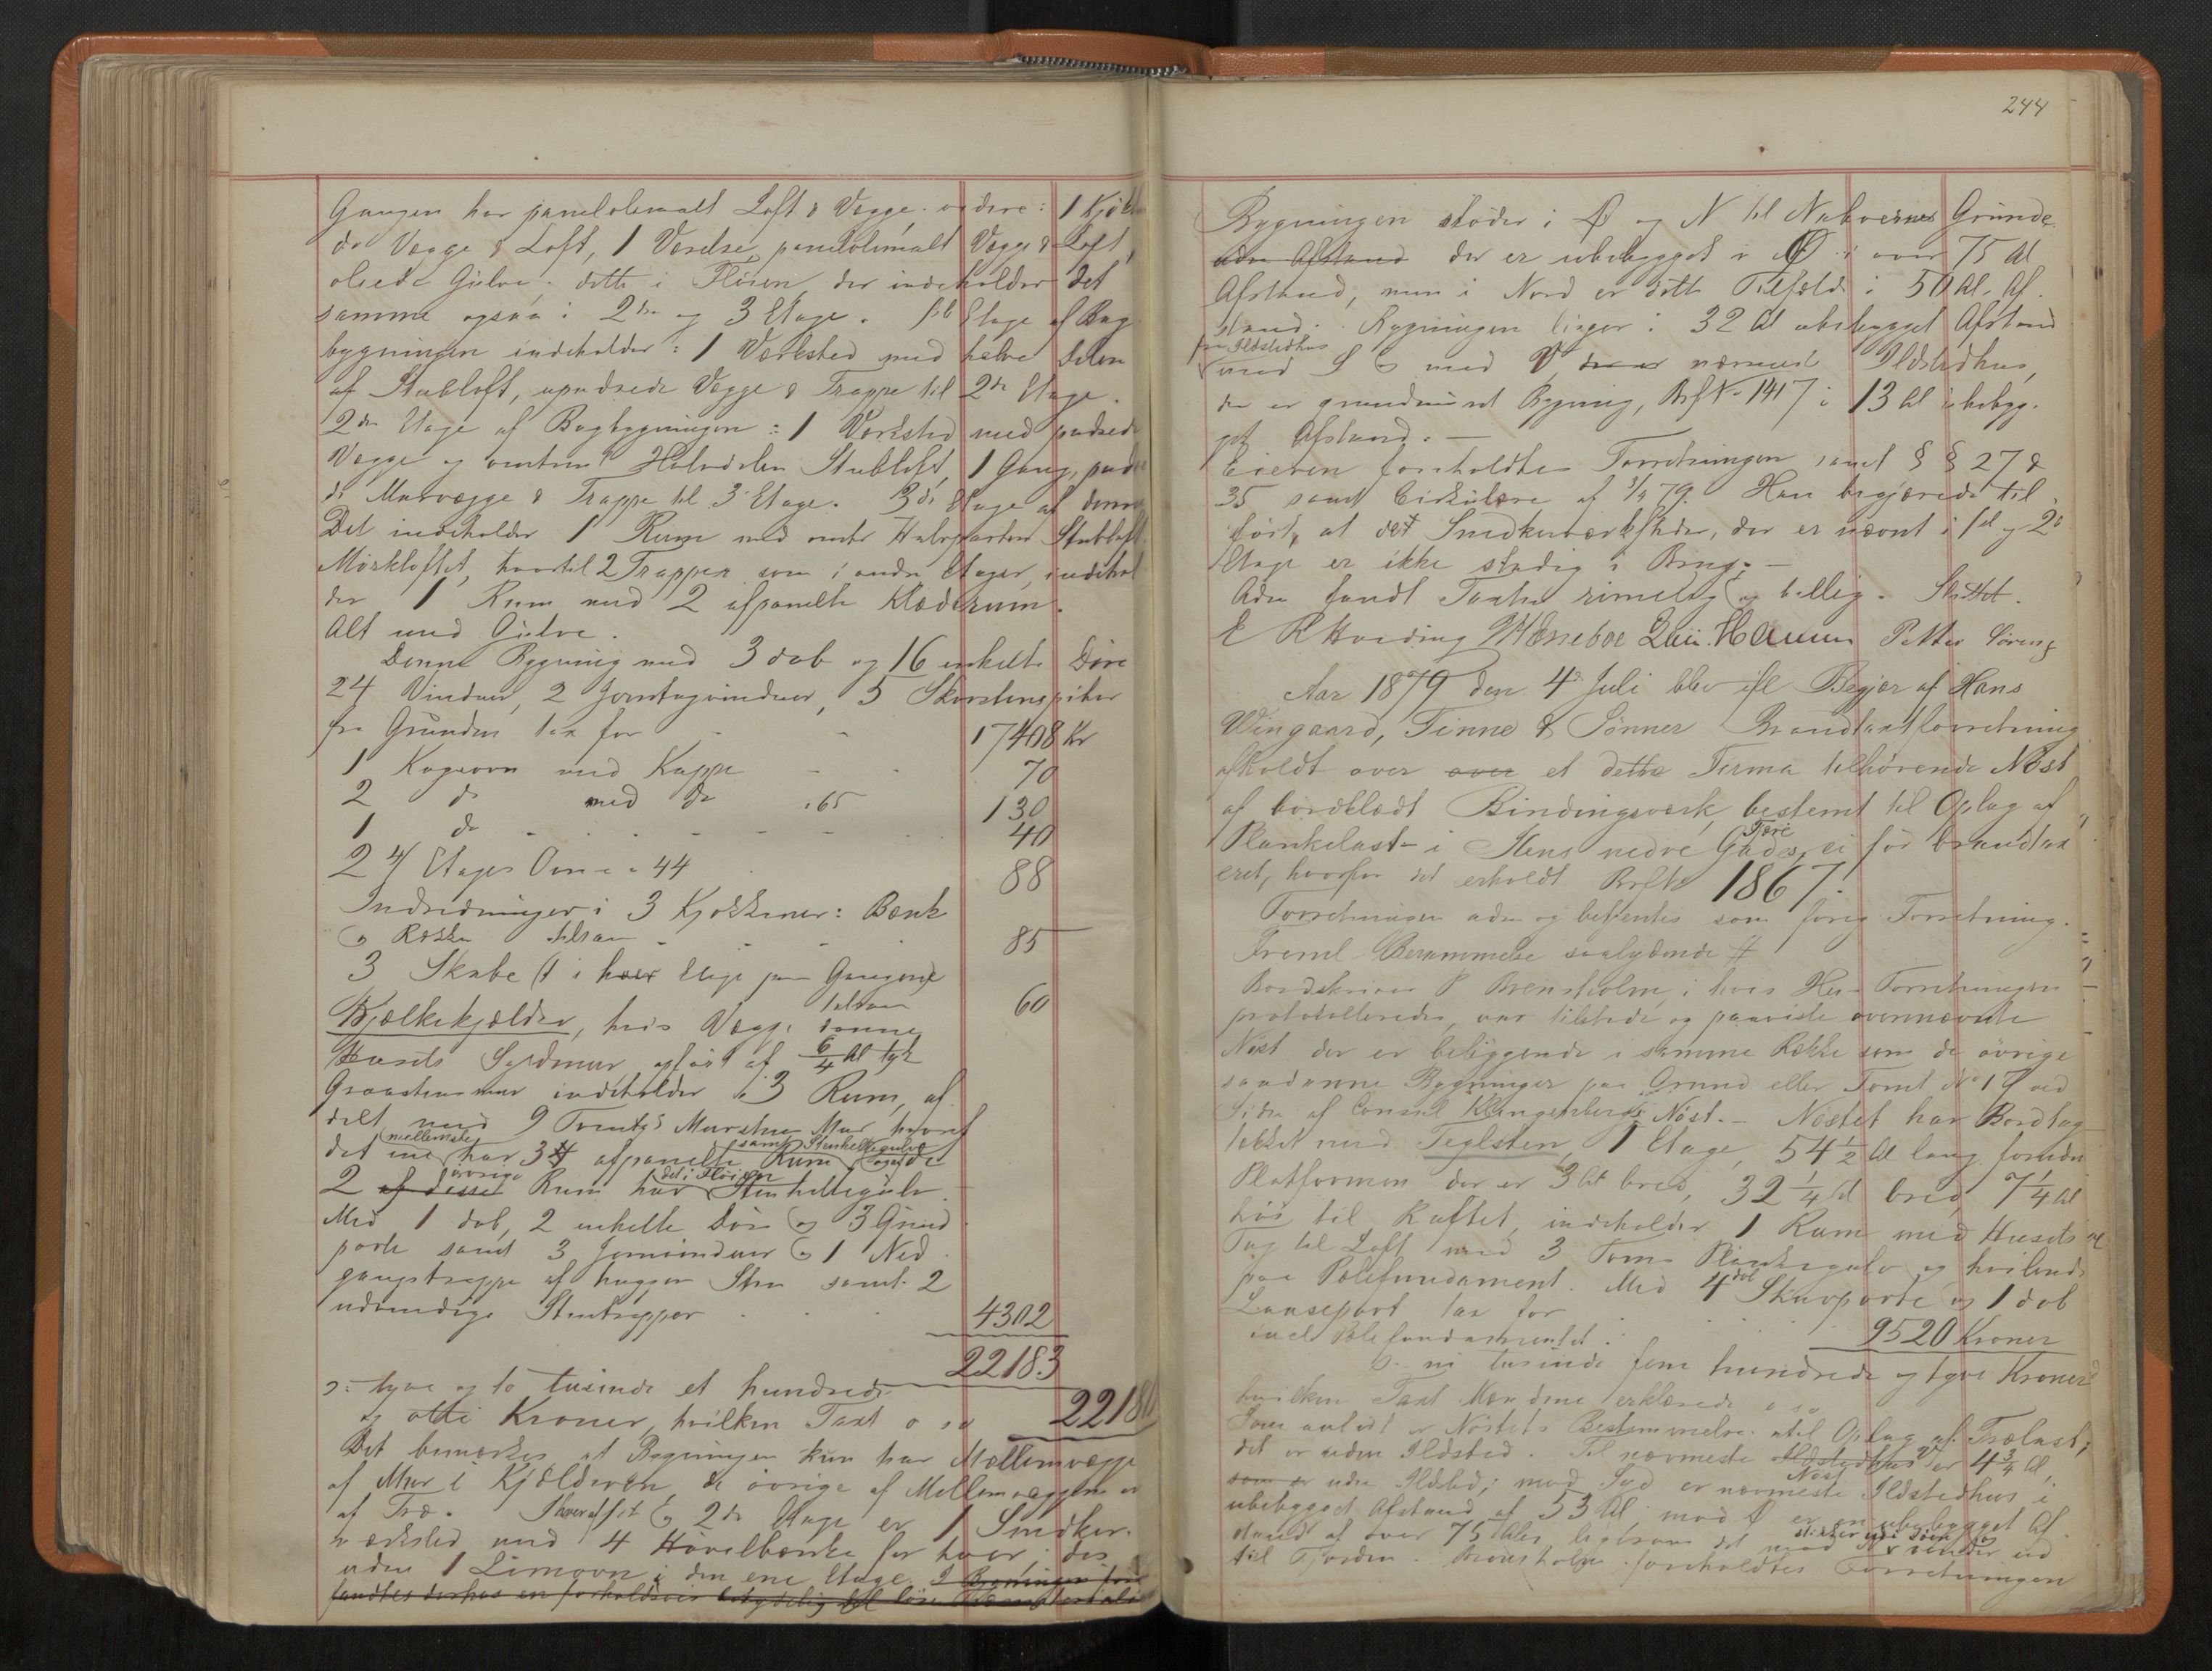 Gangen har panelolimalt Loft & Vægge. videre: 1 Kjøkken
do Vægge & Loft, 1 Værelse, panelolimalt Vægge & Loft,
oliede Gulve. dette i Fløien, der indeholder det
samme ogsaa i 2den og 3 Etage. 1ste Etage af Bag
bygningen indeholder: 1 Værksted med halve Delen
af Stubloft, upudsede Vægge & Trappe til 2den Etage.
2den Etage af Bagbygningen: 1 Værksted med pudsede
Vægge og omtrent Halvdelen Stubloft, 1 Gang, pudse
de Murvægge & Trappe til 3 Etage. 3die Etage af denne
Del indeholder 1 Rum med omtr Halvparten Stubloft.
Mørkloftet, hvortil 2 Trapper som i andre Etager, indehol
der 1 Rum med 2 afpanelte Klæderum.
Alt med Gulve.
Denne Bygning med 3 dob og 16 enkelte Døre
24 Vinduer, 2 Jerntagvinduer, 5 Skorstenspiber
fra Grunden tax for 17408 Kr
1 Kogeovn med Kappe 70
2 do med do a 65 130
1 do 40
2 4/ Etages Ovne a 44 88
Indredninger i 3 Kjøkkener: Bænk
og Række tilsam 85
3 Skabe (1 i hver Etage paa Gangene)
tilsam 60
Bjælkekjælder, hvis Vægge danne
Husets Syldmur opført af 6/4 Al tyk
Graastensmur indeholder 3 Rum, af
delt med 9 Tomts Mursten Mur hvoraf
det ene mellemste har 3 afpanelte Rum samt Stenhellegulv og de
2 af disse øvrige Rum har det i Fløien Stenhellegulv.
Med 1 dob, 2 enkelte Døre og 3 Grind
porte samt 3 Jernvinduer og 1 Ned
gangstrappe af huggen Sten samt 2
udvendige Stentrapper 4302
22183
o: tyve og to tusinde et hundrede
og otti Kroner, hvilken Taxt o s v 22180
Det bemærkes at Bygningen kun har Mellemvægge
af Mur i Kjælderen, de øvrige af Mellemvæggene er
af Træ. I hver af 1st og 2den Etage er 1 Snedker
værksted med 4 Høvelbænke for hver, des
uden 1 Limovn i den ene Etage. I Bygningen for
fandtes derhos en forholdsvis betydelig del løse

244
Bygningen støder i Ø og N til Naboernes Grunde
uden Afstand der er ubebygget i Ø i over 75 Al
Afstand, men i Nord er dette Tilfælde i 50 Al. Af
stand. Bygningen ligger i 32 Al ubebygget Afstand
fra Ildstedhus
mod S og mod V, der er nærmest Ildstedhus,
der er grundmuret Bygning, Brf No 1417 i 13 Al ubebyg.
get Afstand. —
Eieren foreholdtes Forretningen samt § § 27 &
35 samt Cirkulære af 3/4 79. Han begjærede til
ført, at det Snedkerværksteder, der er nævnt i 1st og 2d
Etage er ikke stadig i Brug. —
Adm fandt Taxten rimelig og billig. Sluttet.
E R Hveding Petter Sørens
Aar 1879 den 4de Juli blev ifl Begjær af Hans
Wingaard, Finne & Sønner Brandtaxtforretning
afholdt over over et dette Firma tilhørende Nøst
af bordklædt Bindingsværk, bestemt til Oplag af
Plankelast i Stens nedre Gade, ei før brandtax
eret, hvorfor det erholdt Brfte 1867.
Forretningen adm og betjentes som forrige Forretning.
Freml Berammelse saalydende #
Bordskriver P Brensholm, i hvis Hus Forretningen
protokolleredes, var tilstede og paaviste ovennævnte
Nøst der er beliggende i samme Række som de øvrige
saadanne Bygninger paa Grund eller Tomt No 17 ved
Siden af Consul Klingenbergs Nøst. — Nøstet har Bordtag
tækket med Teglsten, 1 Etage, 54 1/2 Al lang foruden
Platformen der er 3 Al bred, 32 1/4 Al bred, 7 1/4 Al
høi til Raftet, indeholder 1 Rum med Husets
Tag til Loft med 3 Tom Plankegulv og hvilende
paa Pælefundament. Med 4 dob Skuvporte og 1 dob
Laaseport tax for
incl Pælefundamentet 9520 Kroner
o: ni tusinde fem hundrede og tyve Kroner
hvilken Taxt Mændene erklærede o s v
Som anført er Nøstets Bestemmelse til Oplag af Trælast;
det er uden Ildsted. Til nærmeste Ildstedhus Nøst V er 4 3/4 Al,
som er uden Ildsted; mod Syd er nærmeste Ildstedhus i
ubebygget Afstand af 53 Al, mod Ø er en ubebygget Af
stand af over 75 Alen ligesom det mod N vender ud
til Fjorden. Brensholm foreholdtes Forretningen